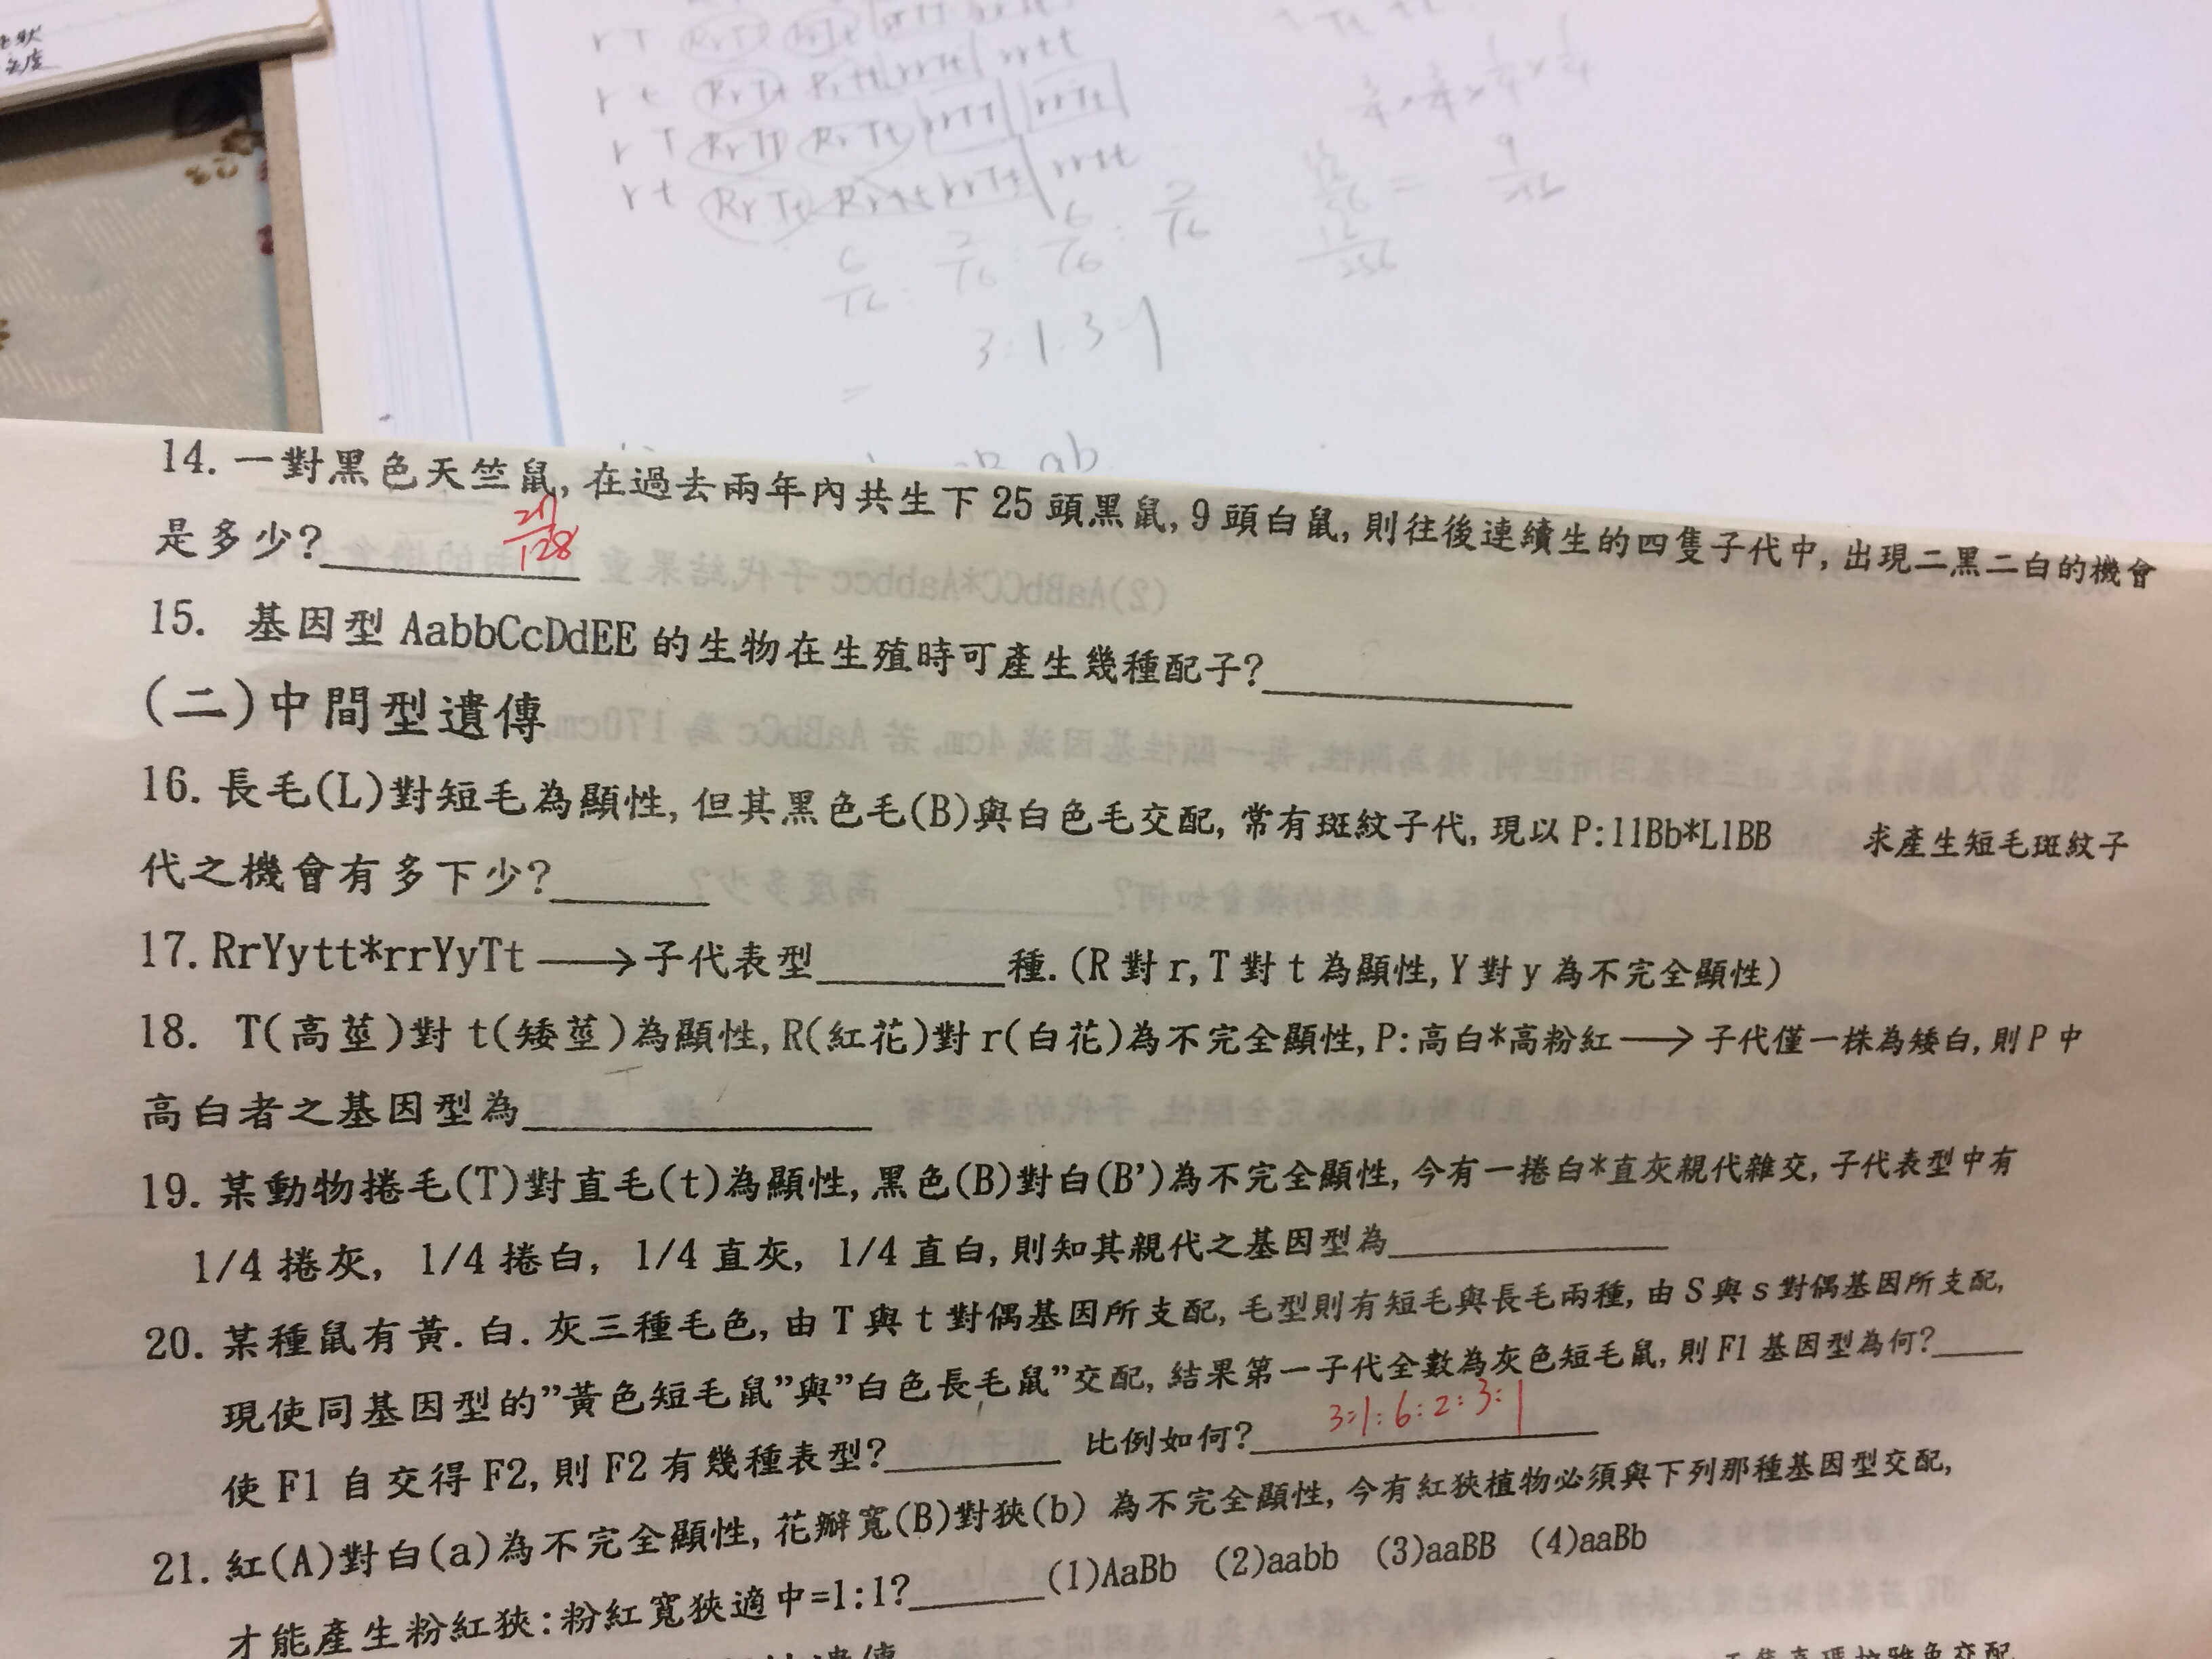 r T RrTT RrTt
r t RrTt Rrtt rrTt rrtt
r T RrTT RrTt rrTT rrTt
r t RrTt Rrtt rrTt rrtt
6/16 : 2/16 : 6/16 : 2/16
3:1:3:1
=
= 9/256
12/256
14. 一對黑色天竺鼠, 在過去兩年內共生下 25 頭黑鼠, 9 頭白鼠, 則往後連續生的四隻子代中, 出現二黑二白的機會
是多少? 27/128
15. 基因型 AabbCcDdEE 的生物在生殖時可產生幾種配子?
(二)中間型遺傳
16. 長毛(L)對短毛為顯性, 但其黑色毛(B)與白色毛交配, 常有斑紋子代, 現以 P:llBb*LlBB 求產生短毛斑紋子
代之機會有多下少?
17. RrYytt*rrYyTt ⟶ 子代表型 種. (R 對 r, T 對 t 為顯性, Y 對 y 為不完全顯性)
18. T(高莖)對 t(矮莖)為顯性, R(紅花)對 r(白花)為不完全顯性, P:高白*高粉紅 ⟶ 子代僅一株為矮白, 則 P 中
高白者之基因型為
19. 某動物捲毛(T)對直毛(t)為顯性, 黑色(B)對白(B’)為不完全顯性, 今有一捲白*直灰親代雜交, 子代表型中有
1/4 捲灰, 1/4 捲白, 1/4 直灰, 1/4 直白, 則知其親代之基因型為
20. 某種鼠有黃. 白. 灰三種毛色, 由 T 與 t 對偶基因所支配, 毛型則有短毛與長毛兩種, 由 S 與 s 對偶基因所支配,
現使同基因型的”黃色短毛鼠”與”白色長毛鼠”交配, 結果第一子代全數為灰色短毛鼠, 則 F1 基因型為何?
使 F1 自交得 F2, 則 F2 有幾種表型? 比例如何? 3:1:6:2:3:1
21. 紅(A)對白(a)為不完全顯性, 花瓣寬(B)對狹(b) 為不完全顯性, 今有紅狹植物必須與下列那種基因型交配,
才能產生粉紅狹:粉紅寬狹適中=1:1? (1)AaBb (2)aabb (3)aaBB (4)aaBb